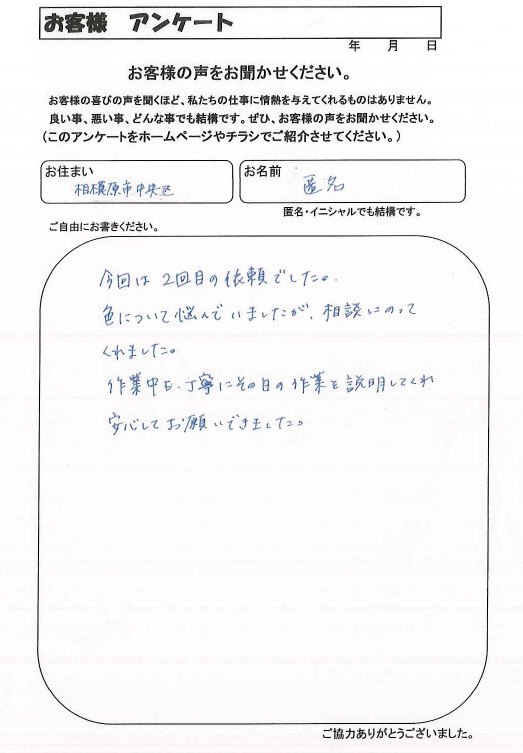 お客様 アンケート
年 月 日
お客様の声をお聞かせください。
お客様の喜びの声を聞くほど、私たちの仕事に情熱を与えてくれるものはありません。
良い事、悪い事、どんな事でも結構です。ぜひ、お客様の声をお聞かせください。
(このアンケートをホームページやチラシでご紹介させてください。)
お住まい
相模原市中央区
お名前
匿名
匿名・イニシャルでも結構です。
ご自由にお書きください。
今回は2回目の依頼でした。
色について悩んでいましたが、相談にのって
くれました。
作業中も、丁寧にその日の作業を説明してくれ
安心してお願いできました。
ご協力ありがとうございました。